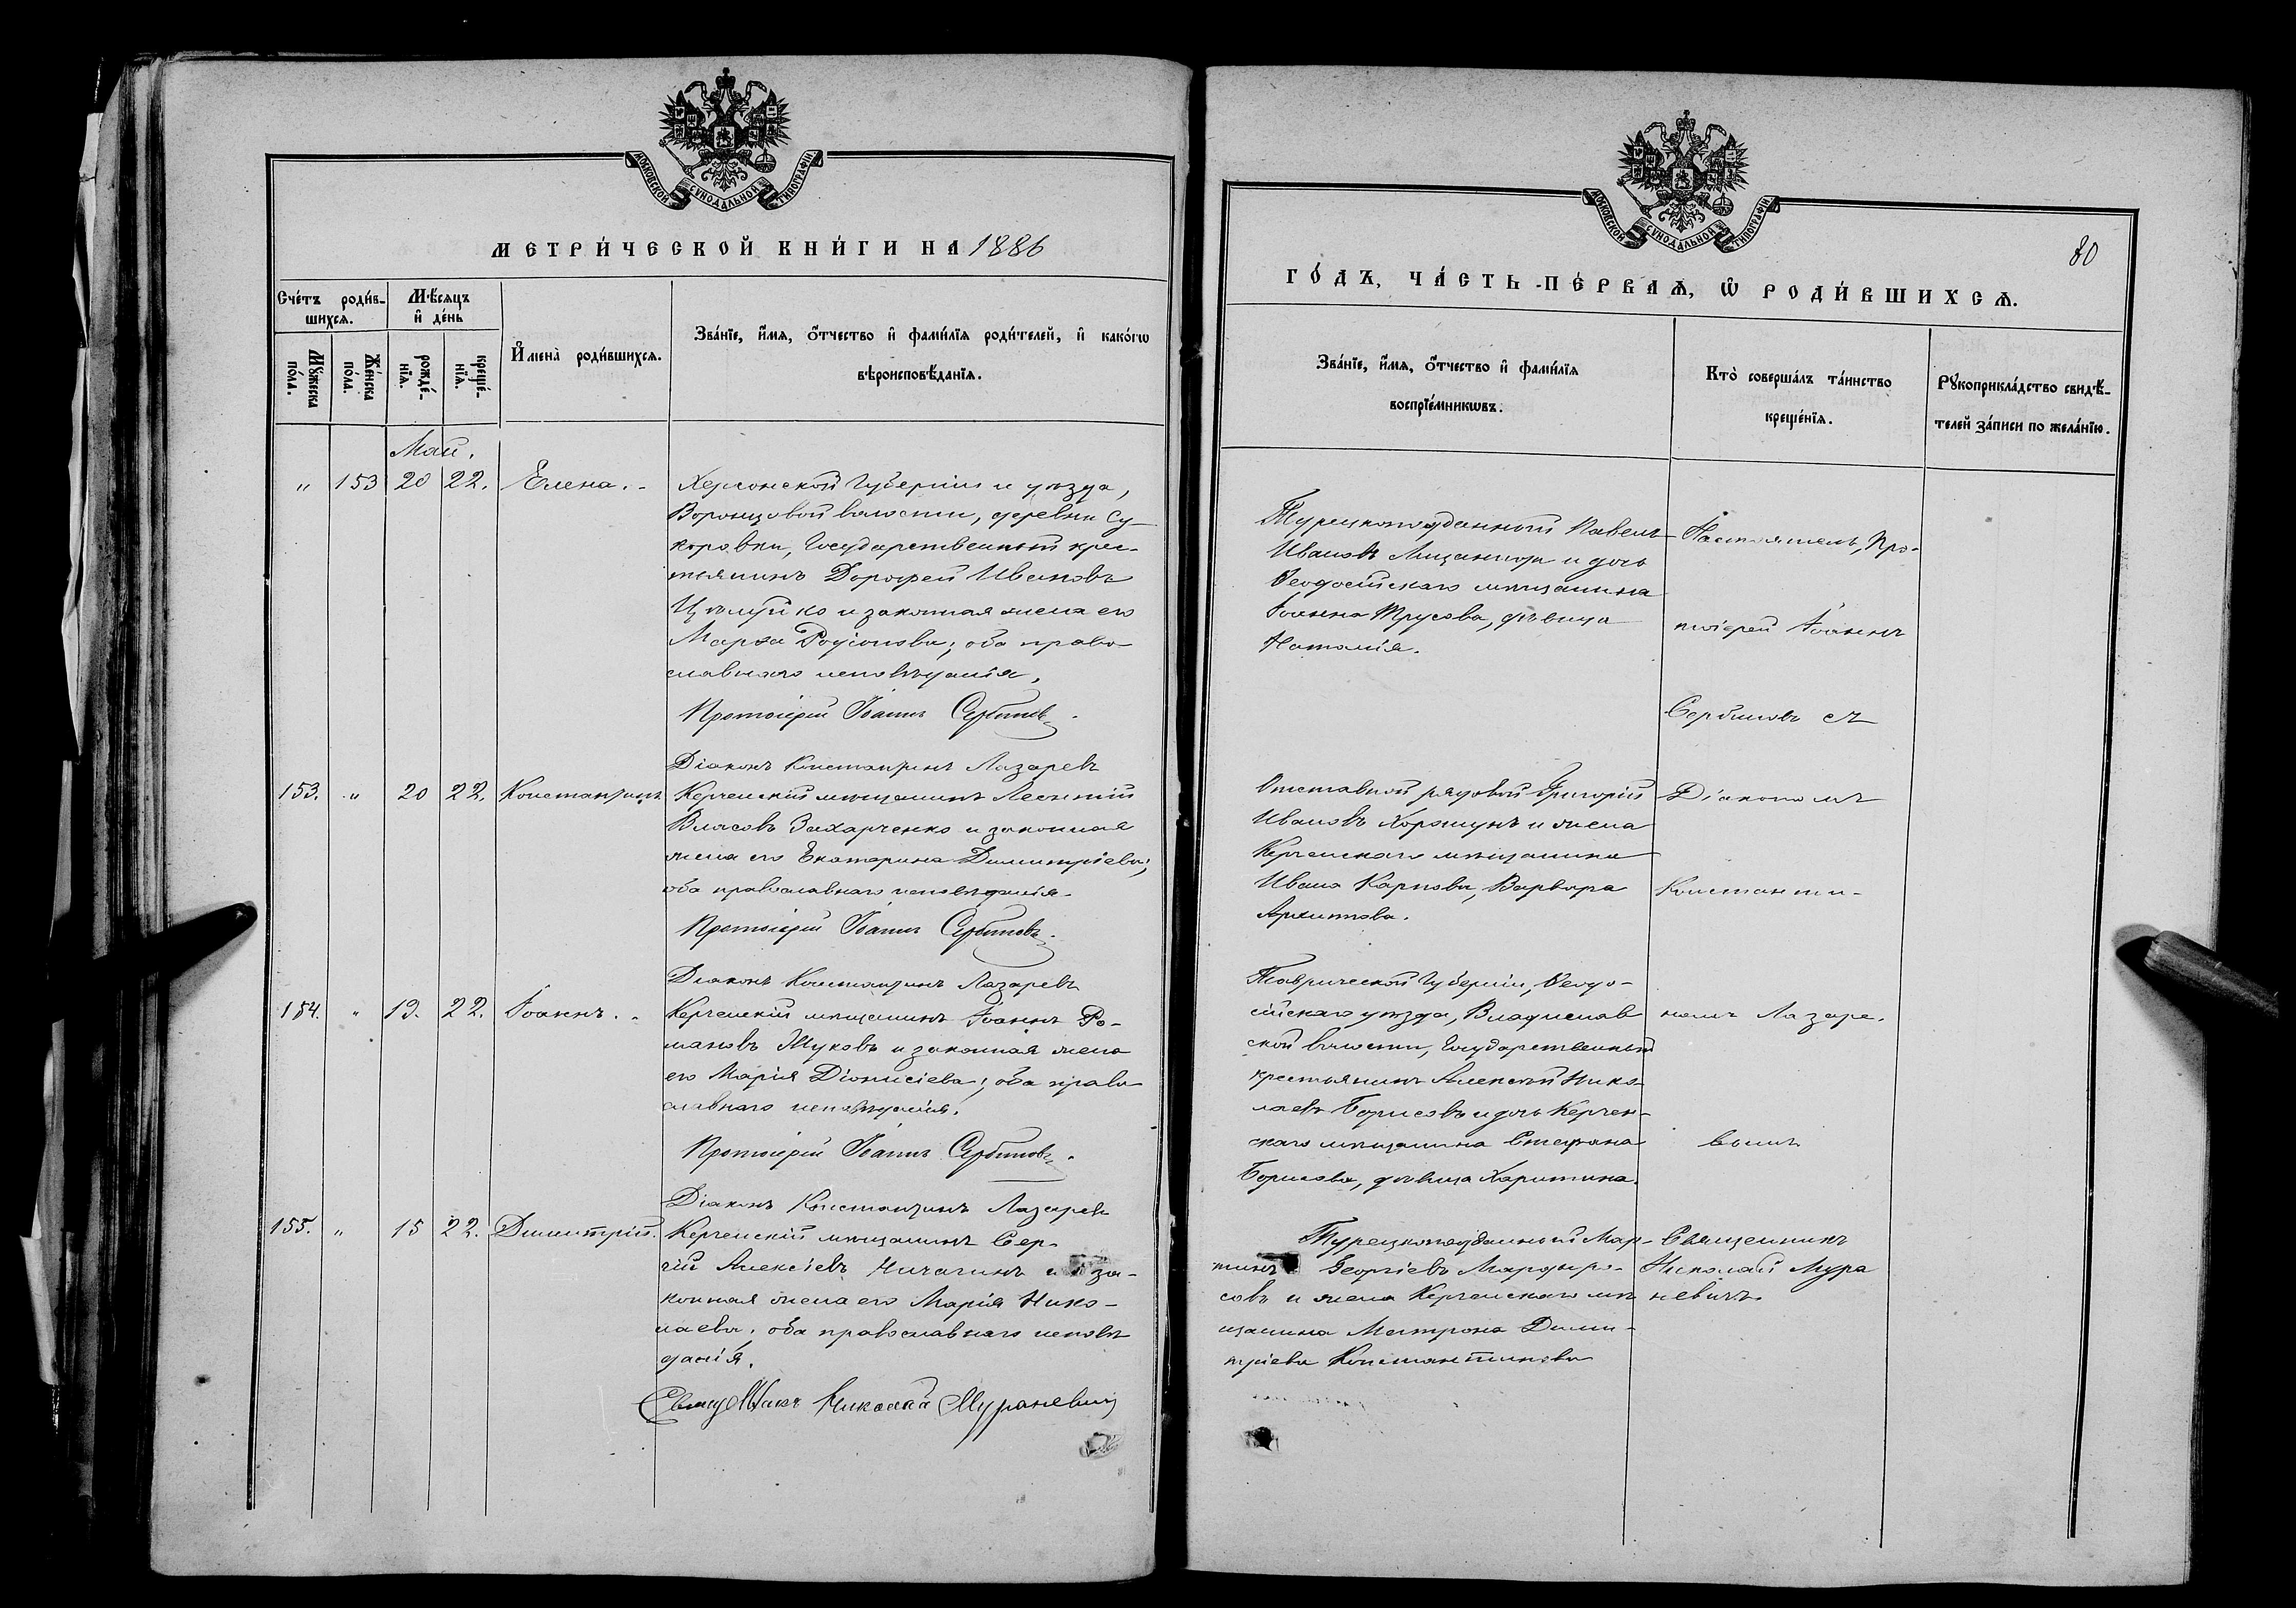 МОСКОВСКОЙ СУНОДАЛЬНОЙ ТИПОГРАФІИ
МЕТРИ́ЧЕСКОЙ КНИ́ГИ НА 1886
Сче́тъ роди́в-
шихсѧ.
Мѣ́сѧцъ
и҆ де́нь
Мꙋ́жеска
по́ла.
Же́нска
по́ла.
рожде́-
нїѧ.
креще́-
нїѧ.
И҆мена̀ роди́вшихсѧ.
Зва́нїе, и҆́мѧ, ѻ҆́тчество и҆ фами́лїѧ роди́телей, и҆ како́гѡ
вѣроисповѣ́данїѧ.
Май.
" 153 20 22. Елена. -
Херсонской Губерніи и уѣзда,
Воронцовой волости, деревни Су-
воровки, Государственный крес-
тьянинъ Дорофей Ивановъ
Цѣлуйко и законная жена его
Марѳа Родіонова; оба право-
славнаго исповѣданія,
Протоіерей Іоаннъ Сербиновъ.
Діаконъ Константинъ Лазаревъ
153. " 20 22. Константинъ
Керченскій мѣщанинъ Леонтій
Власовъ Захарченко и законная
жена его Екатерина Димитріева;
оба православнаго исповѣданія.
Протоіерей Іоаннъ Сербиновъ.
Діаконъ Константинъ Лазаревъ
154. " 19. 22. Іоаннъ. -
Керченскій мѣщанинъ Іоаннъ Ро-
мановъ Жуковъ и законная жена
его Марія Діонисіева; оба право-
славнаго исповѣданія.
Протоіерей Іоаннъ Сербиновъ.
Діаконъ Константинъ Лазаревъ
155. " 15 22. Димитрій.
Керченскій мѣщанинъ Сер-
гій Алексіевъ Ничагинъ и за-
конная жена его Марія Нико-
лаева; оба православнаго исповѣ
данія.
Священникъ Николай Мураневичъ
МОСКОВСКОЙ СУНОДАЛЬНОЙ ТИПОГРАФІИ
80
ГО́ДЪ, ЧА́СТЬ ПЕ́РВАѦ, Ѡ҆ РОДИ́ВШИХСѦ.
Зва́нїе, и҆́мѧ, ѻ҆́тчество и҆ фами́лїѧ
воспрїе́мникѡвъ.
Кто̀ соверша́лъ та́инство
креще́нїѧ.
Рꙋкоприкла́дство свидѣ́-
телей за́писи по жела́нїю.
Турецкоподданный Павелъ
Ивановъ и дочь
Ѳеодосійскаго мѣщанина
Іоанна Трусова, дѣвица
Наталія.
Настоятель, Про-
тоіерей Іоаннъ
Сербиновъ съ
Отставной рядовой Григорій
Ивановъ Хоропунъ и жена
Керченскаго мѣщанина
Ивана Карпова, Варвара
Архипова.
Діакономъ
Константи-
Таврической Губерніи, Ѳеодо-
сійскаго уѣзда, Владислав
ской волости, Государственный
крестьянинъ Алексѣй Нико-
лаевъ Борисовъ и дочь Керчен-
скаго мѣщанина Стефана
Борисова, дѣвица Харитина.
номъ Лазаре-
вымъ
Турецкоподданный Мар-
тинъ Георгіевъ Мардиро-
совъ и жена Керченскаго мѣ
щанина Матрона Дими-
тріева Константинова
Священникъ
Николай Мура
невичъ.